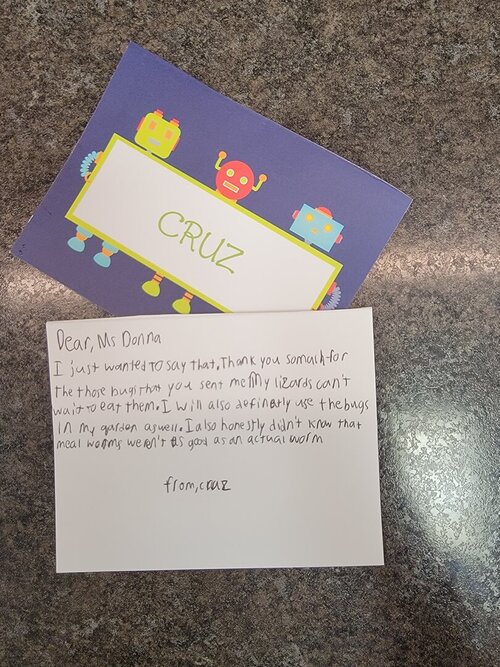 CRUZ
Dear, Ms Donna
I just wanted TO say that, Thank you somuch for
The those bugs that you sent me My lizards can't
wait to eat them. I will also definetly use the bugs
in my garden aswell. I also honestly didn't know that
meal worms weren't as good as an actual worm
from, cruz